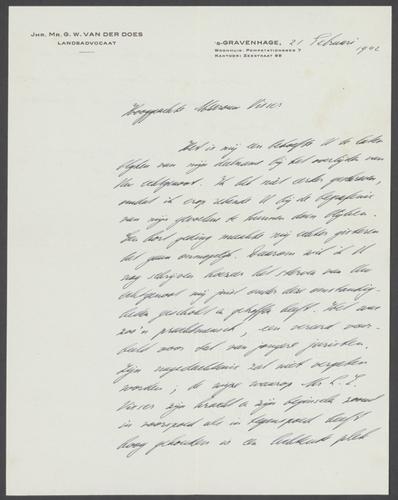 JHR. MR. G. W. VAN DER DOES
LANDSADVOCAAT
'S-GRAVENHAGE, 21 Februari 1942
WOONHUIS: POMPSTATIONSWEG 7
KANTOOR: ZEESTRAAT 68
Hooggeachte Mevrouw Visser
Het is mij een behoefte U te laten
blijken van mijn deelname bij het overlijden van
Uw echtgenoot. Ik heb niet eerder geschreven,
omdat ik erop rekende U bij de begrafenis
van mijn gevoelens te kunnen doen blijken.
Een kort geding maakte mij echter gisteren
het gaan onmogelijk. Daarom wil ik U
nog schrijven hoezeer het sterven van Uw
echtgenoot mij juist onder deze omstandig-
heden geschokt en getroffen heeft. Het was
zoo'n prachtmensch, een vereerd voor-
beeld voor tal van jongere juristen.
Zijn nagedachtenis zal niet vergeten
worden; de wijze waarop Mr L. E.
Visser zijn kracht en zijn beginsels zoowel
in voorspoed als in tegenspoed heeft
hoog gehouden is een lichtende